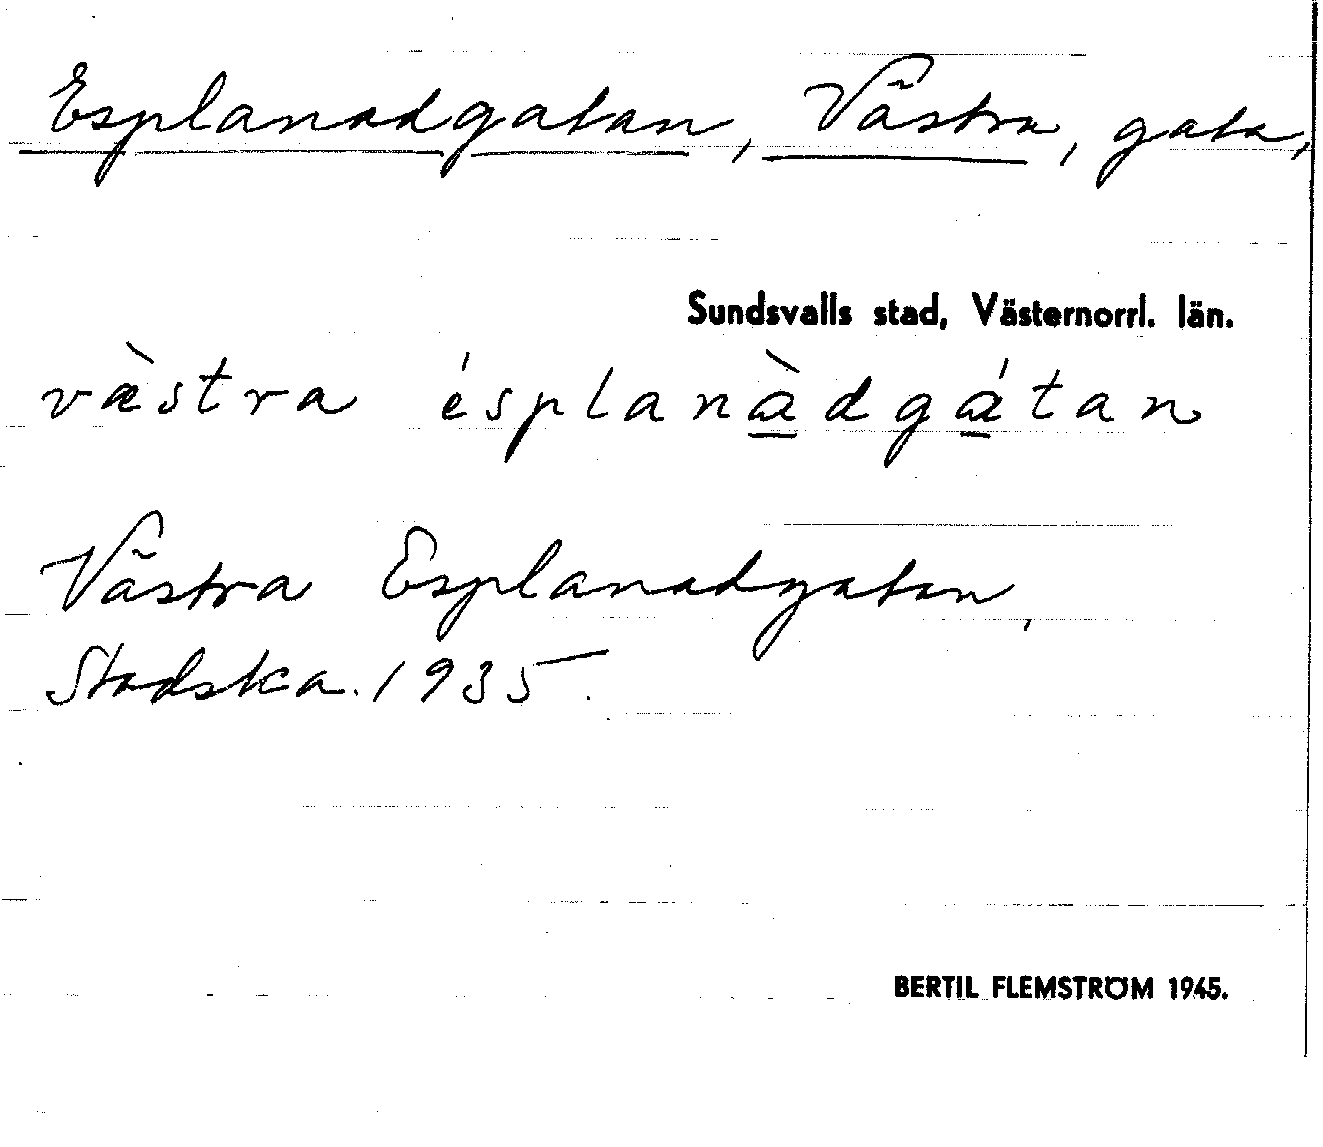 Esplanadgatan, Västra, gata,
Sundsvalls stad, Västernorrl. län.
væ̀stra ésplanà̱dgá̱tan
Västra Esplanadgatan,
Stadska. 1935.
BERTIL FLEMSTRÖM 1945.